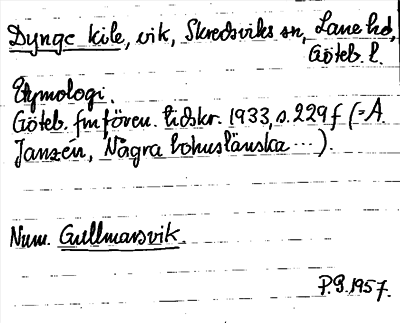 Dynge kile, vik, Skredsviks sn, Lane hd,
Göteb. l.
Etymologi.
Göteb. fmfören. tidskr. 1933, s. 229 f (= A.
Janzén, Några bohuslänska ...).
Num. Gullmarsvik.
P.G. 1957.